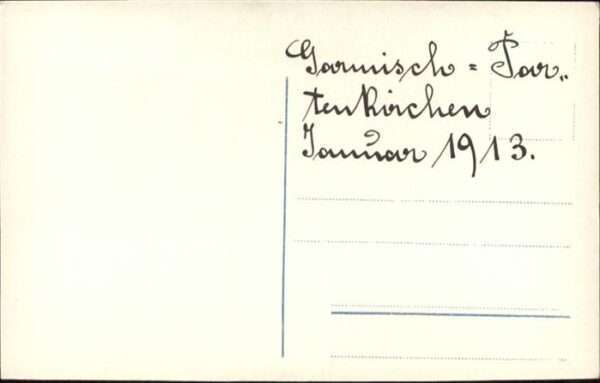 Garmisch = Par„
tenkirchen
Januar 1913.